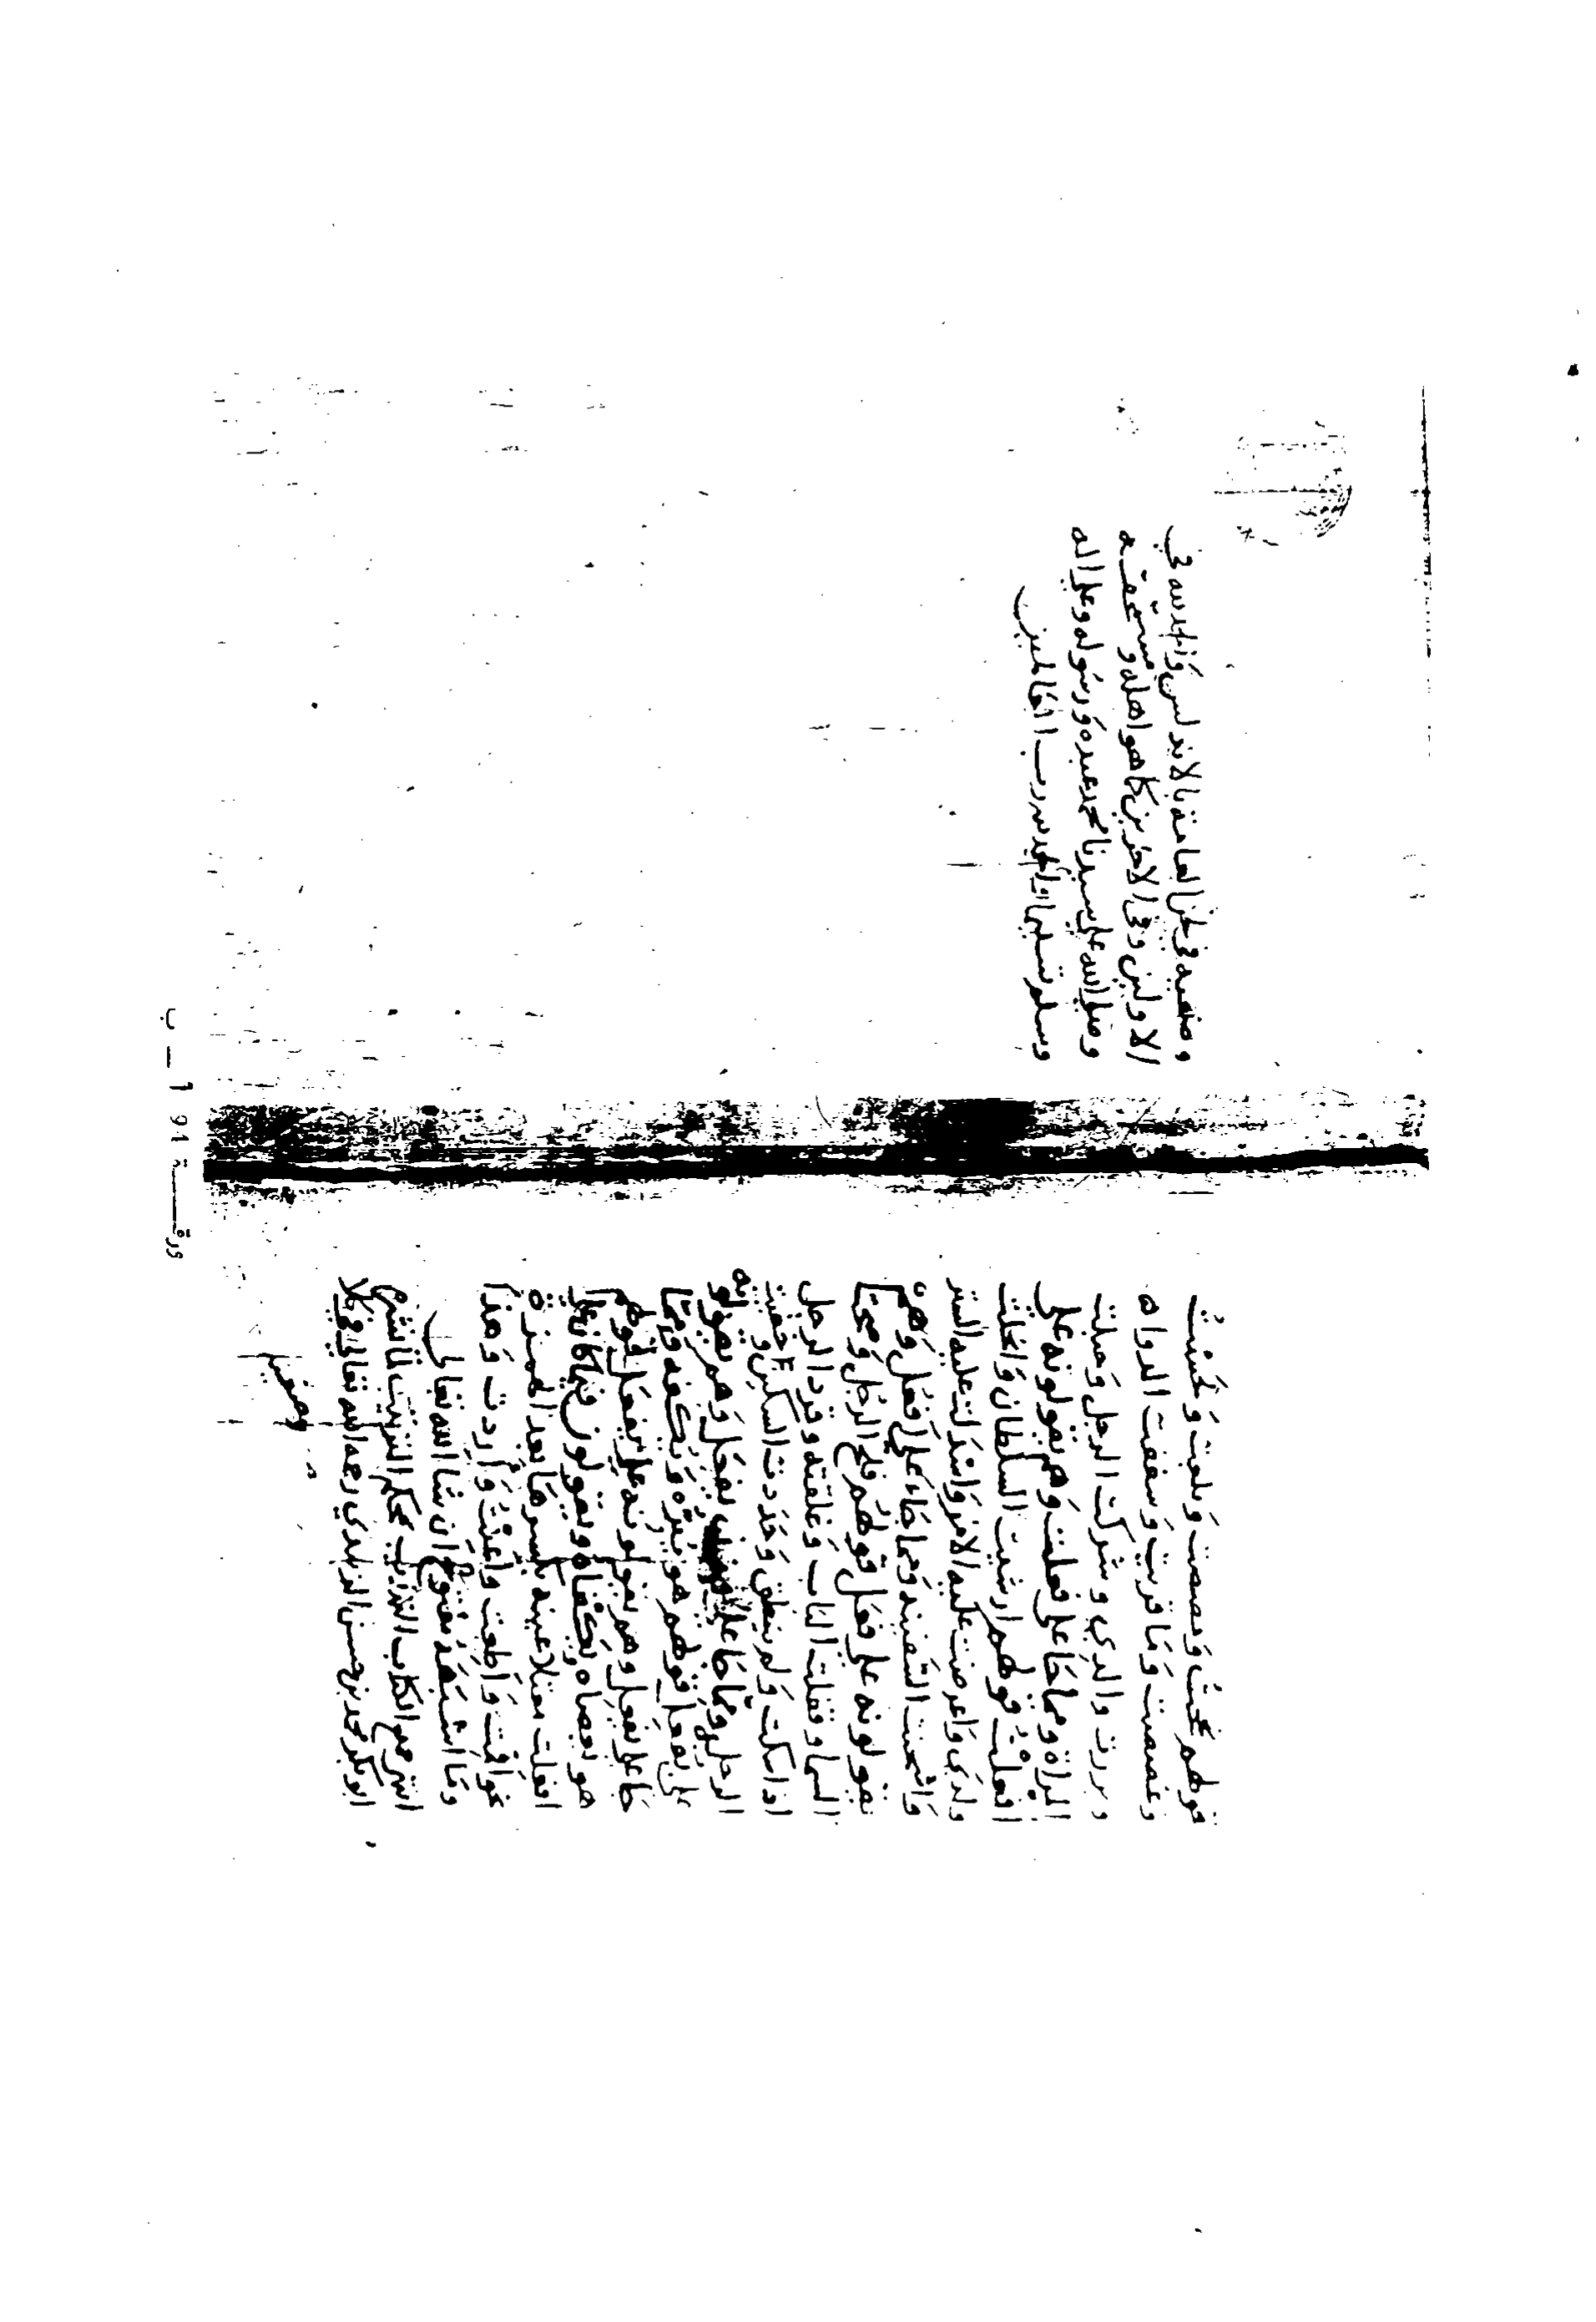 قولهم نحت ونصصت وبلعت ونحست
وغصصت وما قربت وسففت الدواه
وبررت والدي وشركت الرجل وحبلت
المراة ومما جا على فعلت وهم يقولونه على
افعلت قولهم ارشيت السلطان واغلت
ولدى واعرضت عليه الامر واسدلت عليه الستر
واشحنت السفينة ومما جاء على افعل وهم
يقولونه على فعل قولهم فلج الرجل وصحت
السما وقفلت الباب وغلقته وقرد الرجل
اذا سكت ولم ينطق وحددت السكين وخفيت
الرجل ومما جا على يفعل وهم يقولونه
على يفعل قولهم هو ينزه ويكفه ومما
جا على يفعل وهم يقولونه على يفعل قولهم
هو يعصاه ويكفاه ويقولون فيما كان على
افعلت معتلا عينه بكسر ما بعد الهمزة
نحو اقمت واطعت واعنت واردت وهذا
وما اشبهه مفتوح ان شا الله تعالى
انتهى من الكتاب الذي بحكم الترتيب لما نشره
ابو بكر محمد بن حسن الزبيدي رحمه الله تعالى
وصفيه
وصفيه في لحن العامة بالاندلس والحمد لله في
الاولين وفي الاخرين كما هو اهله ومستحقه
وصلى الله على سيدنا محمد عبده ورسوله وعلى اله
وسلم تسليما والحمد لله رب العالمين
ورقة ٩١ أ — ب